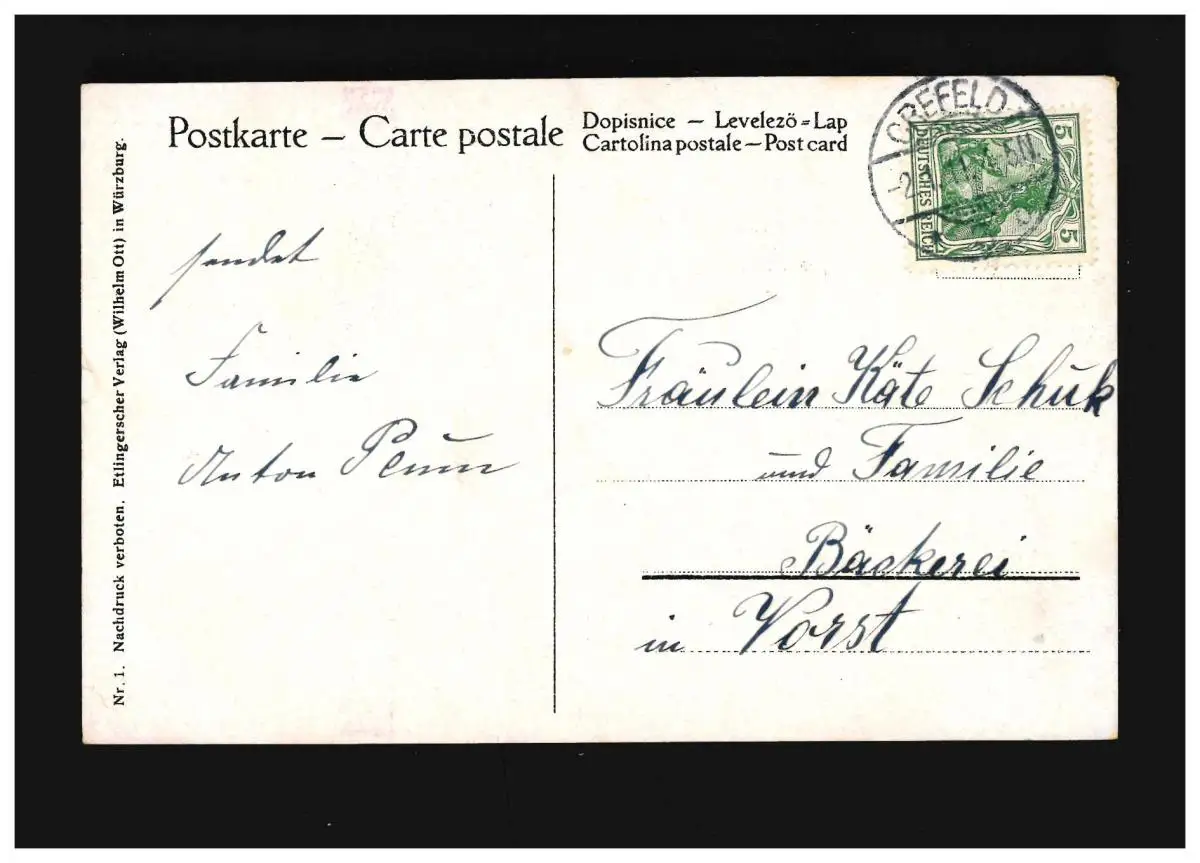 Postkarte – Carte postale
Dopisnice – Levelező-Lap
Cartolina postale – Post card
CREFELD
DEUTSCHES REICH
5
5
sendet
Familie
Anton
Fräulein Käte Schuk
und Familie
Bäckerei
in Vorst
Nr. 1. Nachdruck verboten. Etlingerscher Verlag (Wilhelm Ott) in Würzburg.